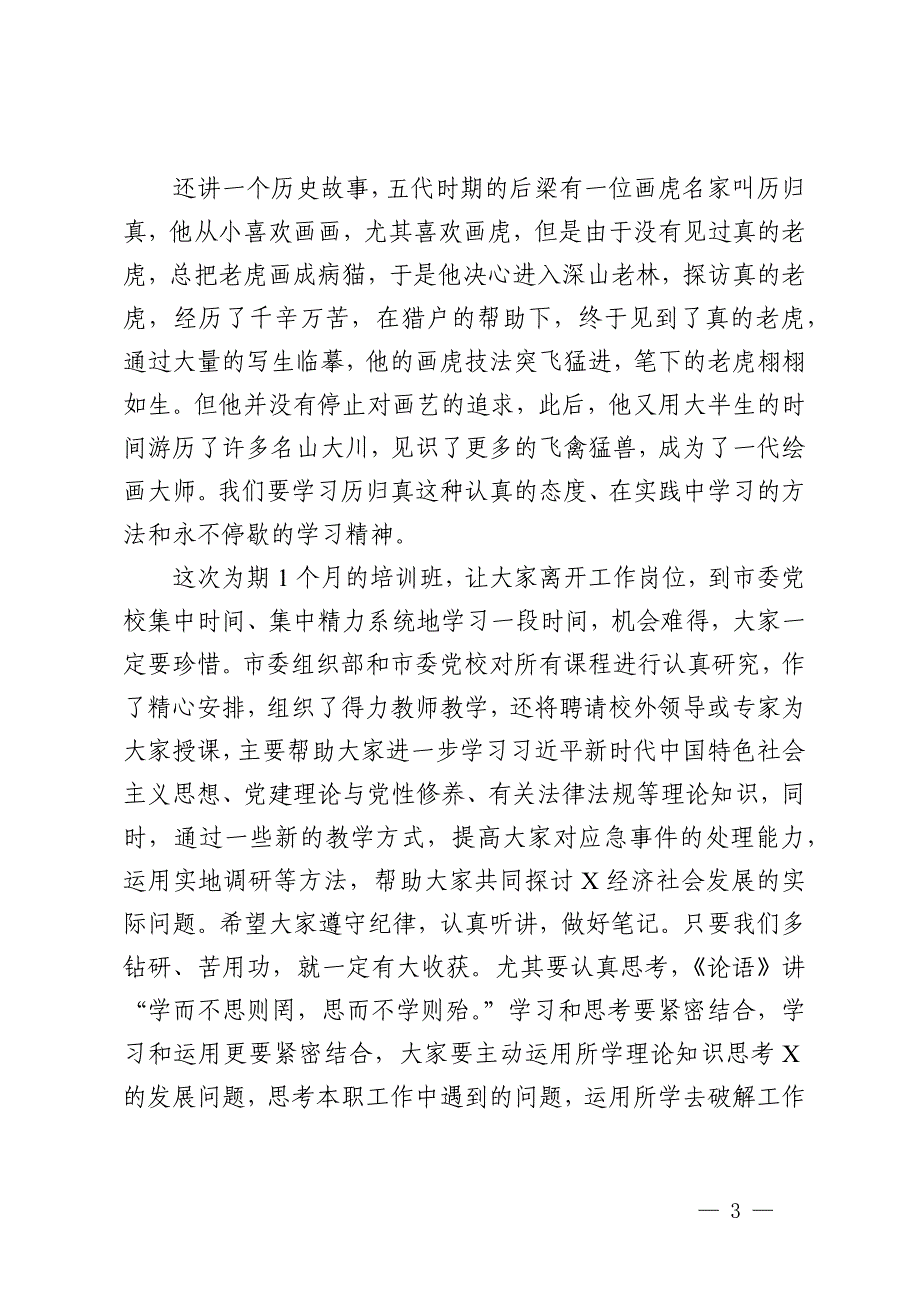 还讲一个历史故事，五代时期的后梁有一位画虎名家叫历归
真，他从小喜欢画画，尤其喜欢画虎，但是由于没有见过真的老
虎，总把老虎画成病猫，于是他决心进入深山老林，探访真的老
虎，经历了千辛万苦，在猎户的帮助下，终于见到了真的老虎，
通过大量的写生临摹，他的画虎技法突飞猛进，笔下的老虎栩栩
如生。但他并没有停止对画艺的追求，此后，他又用大半生的时
间游历了许多名山大川，见识了更多的飞禽猛兽，成为了一代绘
画大师。我们要学习历归真这种认真的态度、在实践中学习的方
法和永不停歇的学习精神。
这次为期 1 个月的培训班，让大家离开工作岗位，到市委党
校集中时间、集中精力系统地学习一段时间，机会难得，大家一
定要珍惜。市委组织部和市委党校对所有课程进行认真研究，作
了精心安排，组织了得力教师教学，还将聘请校外领导或专家为
大家授课，主要帮助大家进一步学习习近平新时代中国特色社会
主义思想、党建理论与党性修养、有关法律法规等理论知识，同
时，通过一些新的教学方式，提高大家对应急事件的处理能力，
运用实地调研等方法，帮助大家共同探讨 X 经济社会发展的实
际问题。希望大家遵守纪律，认真听讲，做好笔记。只要我们多
钻研、苦用功，就一定有大收获。尤其要认真思考，《论语》讲
“学而不思则罔，思而不学则殆。”学习和思考要紧密结合，学
习和运用更要紧密结合，大家要主动运用所学理论知识思考 X
的发展问题，思考本职工作中遇到的问题，运用所学去破解工作
— 3 —